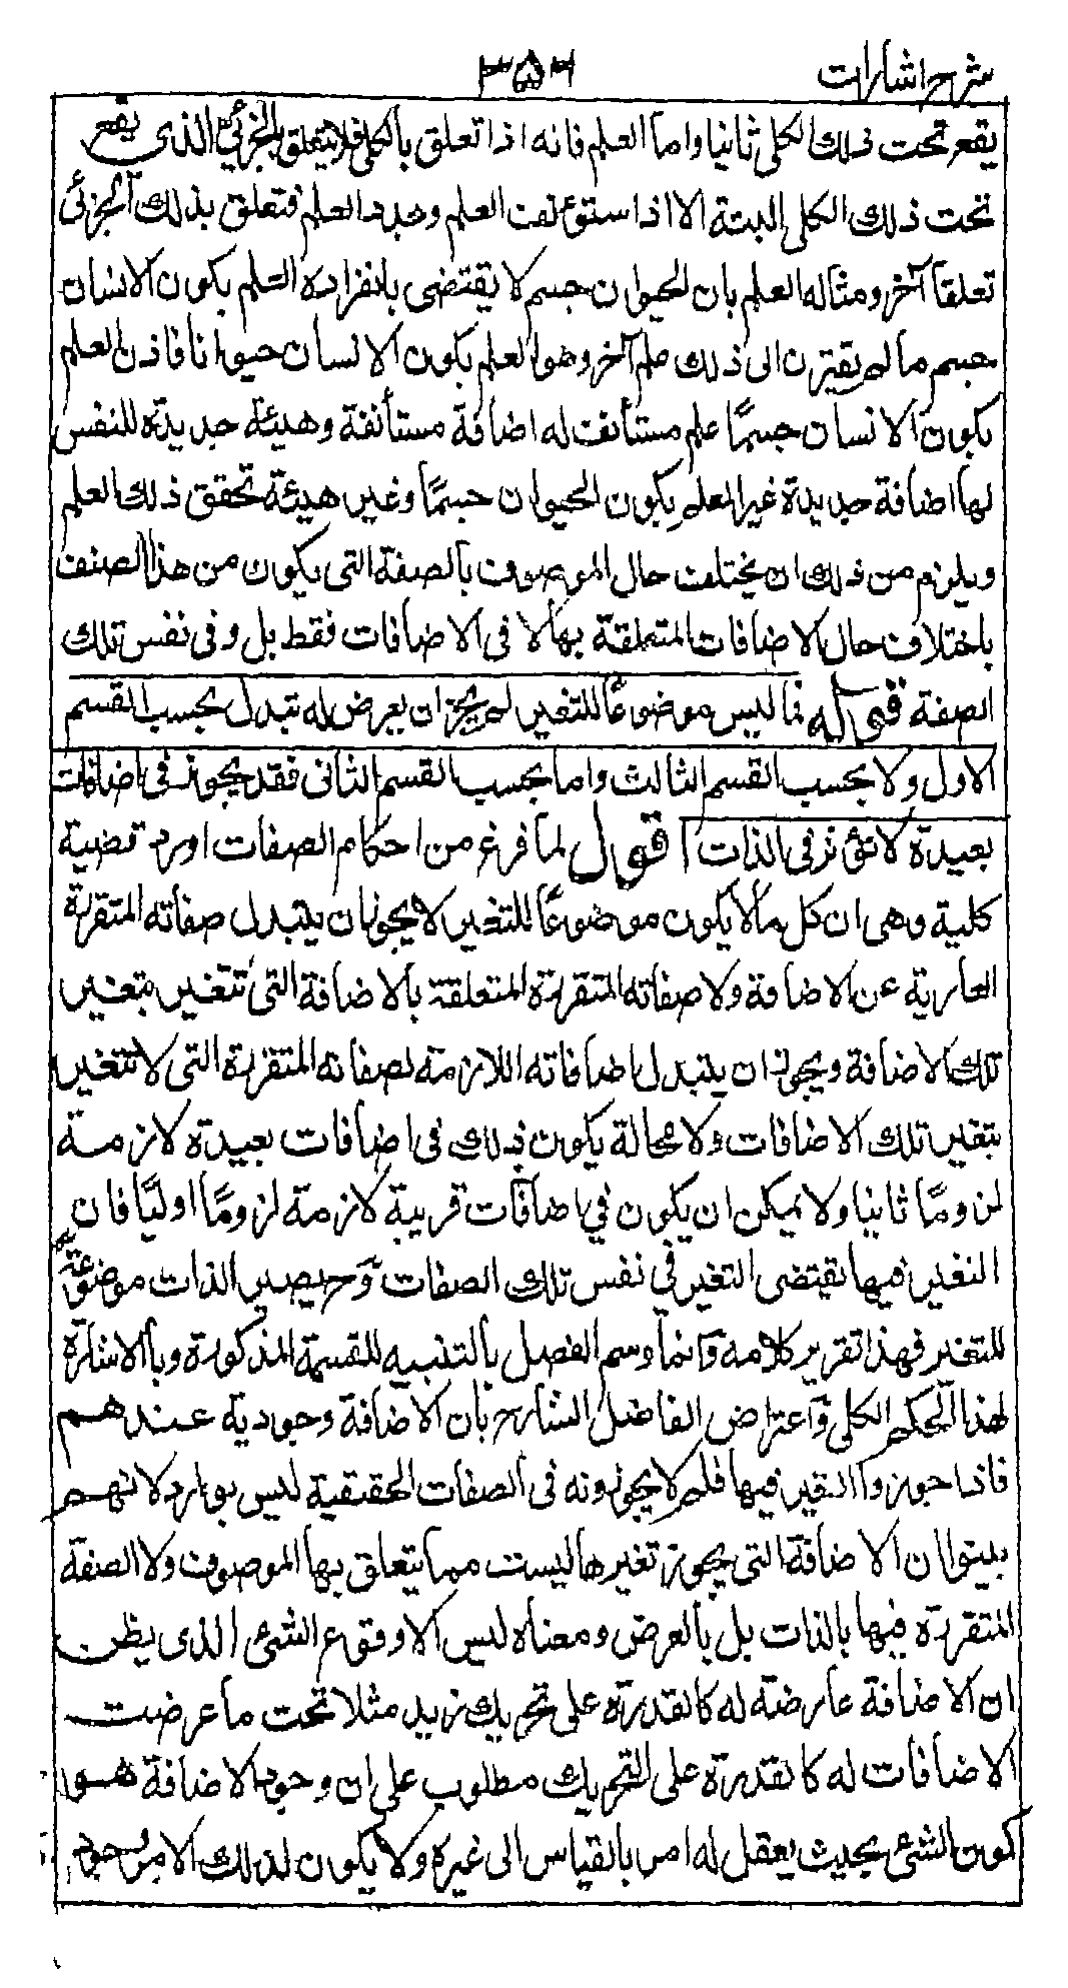 شرح اشارات
٣٥٦
يقع تحت ذلك الكلى ثانيا واما العلم فانه اذا تعلق بالكلى فلا يتعلق بالجزئي الذى يقع
تحت ذلك الكلى البتة الا اذا استؤنف العلم وجدد العلم فتعلق بذلك الجزئى
تعلقا آخر ومثاله العلم بان الحيوان جسم لا يقتضى بانفراده العلم بكون الانسان
جسم ما لم يقترن الى ذلك علم آخر وهو العلم بكون الانسان حيوانا فاذن العلم
بكون الانسان جسمًا علم مستأنف له اضافة مستأنفة وهيئة جديدة للنفس
لها اضافة جديدة غير العلم بكون الحيوان جسمًا وغير هيئة تحقق ذلك العلم
ويلزم من ذلك ان يختلف حال الموصوف بالصفة التى يكون من هذا الصنف
باختلاف حال الاضافات المتعلقة بها لا فى الاضافات فقط بل وفى نفس تلك
الصفة قوله فما ليس موضوعًا للتغير لم يجز ان يعرض له تبدل بحسب القسم
الاول ولا بحسب القسم الثالث واما بحسب القسم الثانى فقد يجوز فى اضافات
بعيدة لا تؤثر فى الذات اقول لما فرغ من احكام الصفات اورد قضية
كلية وهى ان كل ما لا يكون موضوعًا للتغير لا يجوز ان يتبدل صفاته المتقررة
العارية عن الاضافة ولا صفاته المتقررة المتعلقة بالاضافة التى تتغير بتغير
تلك الاضافة ويجوز ان يتبدل اضافاته اللازمة لصفاته المتقررة التى لا تتغير
بتغير تلك الاضافات ولا محالة يكون ذلك فى اضافات بعيدة لازمة
لزومًا ثانيا ولا يمكن ان يكون في اضافات قريبة لازمة لزومًا اوليًا فان
التغير فيها يقتضى التغير في نفس تلك الصفات وح يصير الذات موضوعة
للتغير فهذا تقرير كلامه وانما وسم الفصل بالتنبيه للقسمة المذكورة وبالاشارة
لهذا الحكم الكلى واعتراض الفاضل الشارح بان الاضافة وجودية عندهم
فاذا جوزوا التغير فيها فلم لا يجوزونه فى الصفات الحقيقية ليس بوارد لانهم
بينوا ان الاضافة التى يجوز تغيرها ليست مما يتعلق بها الموصوف ولا الصفة
المتقررة فيها بالذات بل بالعرض ومعناه ليس الا وقوع الشئ الذى يظن
ان الاضافة عارضة له كالقدرة على تحريك زيد مثلا تحت ما عرضت
الاضافات له كالقدرة على التحريك مطلوب على ان وجود الاضافة هو
كون الشئ بحيث يعقل له امر بالقياس الى غيره ولا يكون لذلك الامر وجود